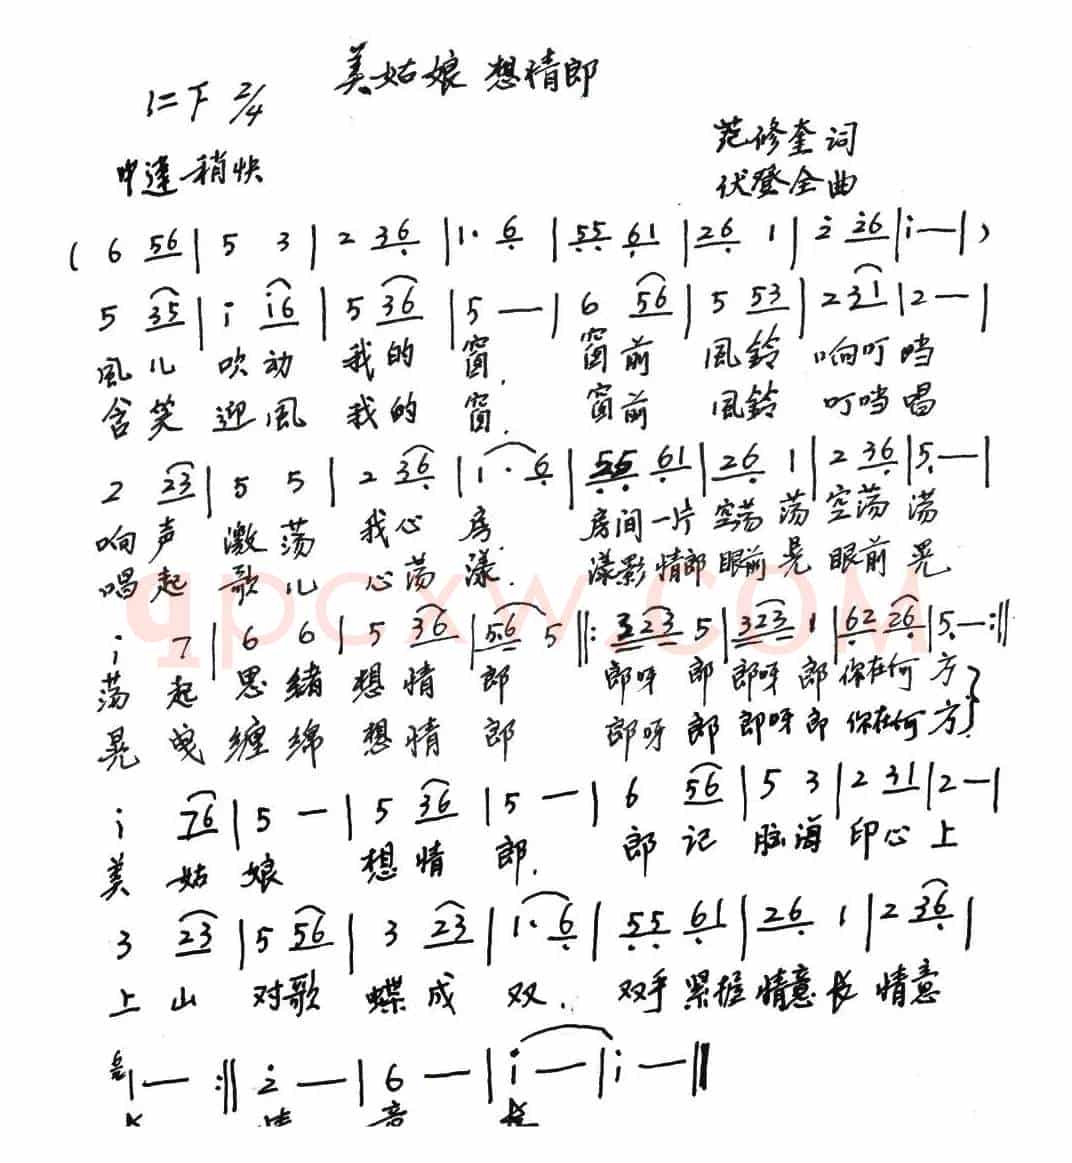 美姑娘 想情郎
1=F 2/4
范修奎 词
中速 稍快
伏登全 曲
( 6 56 | 5 3 | 2 36 | 1· 6 | 55 61 | 26 1 | 2 26 | i — | )
5 35 | i i6 | 5 36 | 5 — | 6 56 | 5 53 | 2 31 | 2 — |
風儿 吹动 我的 窗. 窗前 風鈴 响叮 噹
含笑 迎風 我的 窗. 窗前 風鈴 叮噹 唱
2 23 | 5 5 | 2 36 | 1· 6 | 55 61 | 26 1 | 2 36 | 5 — |
响声 激荡 我心 房. 房间一片 空荡 荡 空荡 荡
唱起 歌儿 心荡 漾. 漾影情郎 眼前 晃 眼前 晃
qpcxw.com
i 7 | 6 6 | 5 36 | 5·6 5 ‖: 323 5 | 323 1 | 62 26 | 5 — :‖
荡起 思緒 想情 郎 郎呀 郎 郎呀 郎 你在何 方
晃曳 缠绵 想情 郎 郎呀 郎 郎呀 郎 你在何 方
i 76 | 5 — | 5 36 | 5 — | 6 56 | 5 3 | 2 31 | 2 — |
美姑 娘 想情 郎. 郎记 脑海 印心 上
3 23 | 5 56 | 3 23 | 1· 6 | 55 61 | 26 1 | 2 36 |
上山 对歌 蝶成 双. 双手紧握 情意 长 情意
1 — :‖ 2 — | 6 — | i — | i — ‖
长 情 意 长